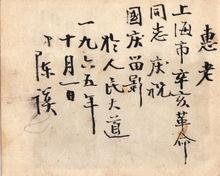 惠老
上海市辛亥革命
同志庆祝
国庆留影
於人民大道
一九六五年
十月一日
陈谟